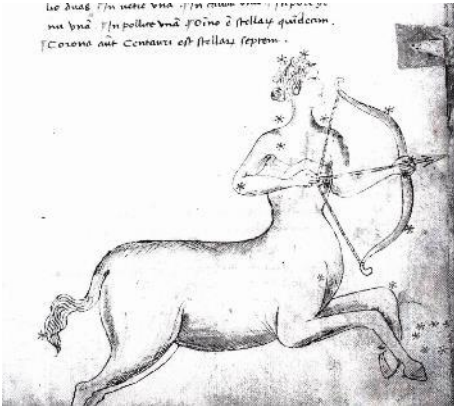 duas In ventre unā In cauda unā In
nu unā In pollice unā Oīno ē stellaꝝ quidecim.
Corona aūt Centauri est stellaꝝ septem.